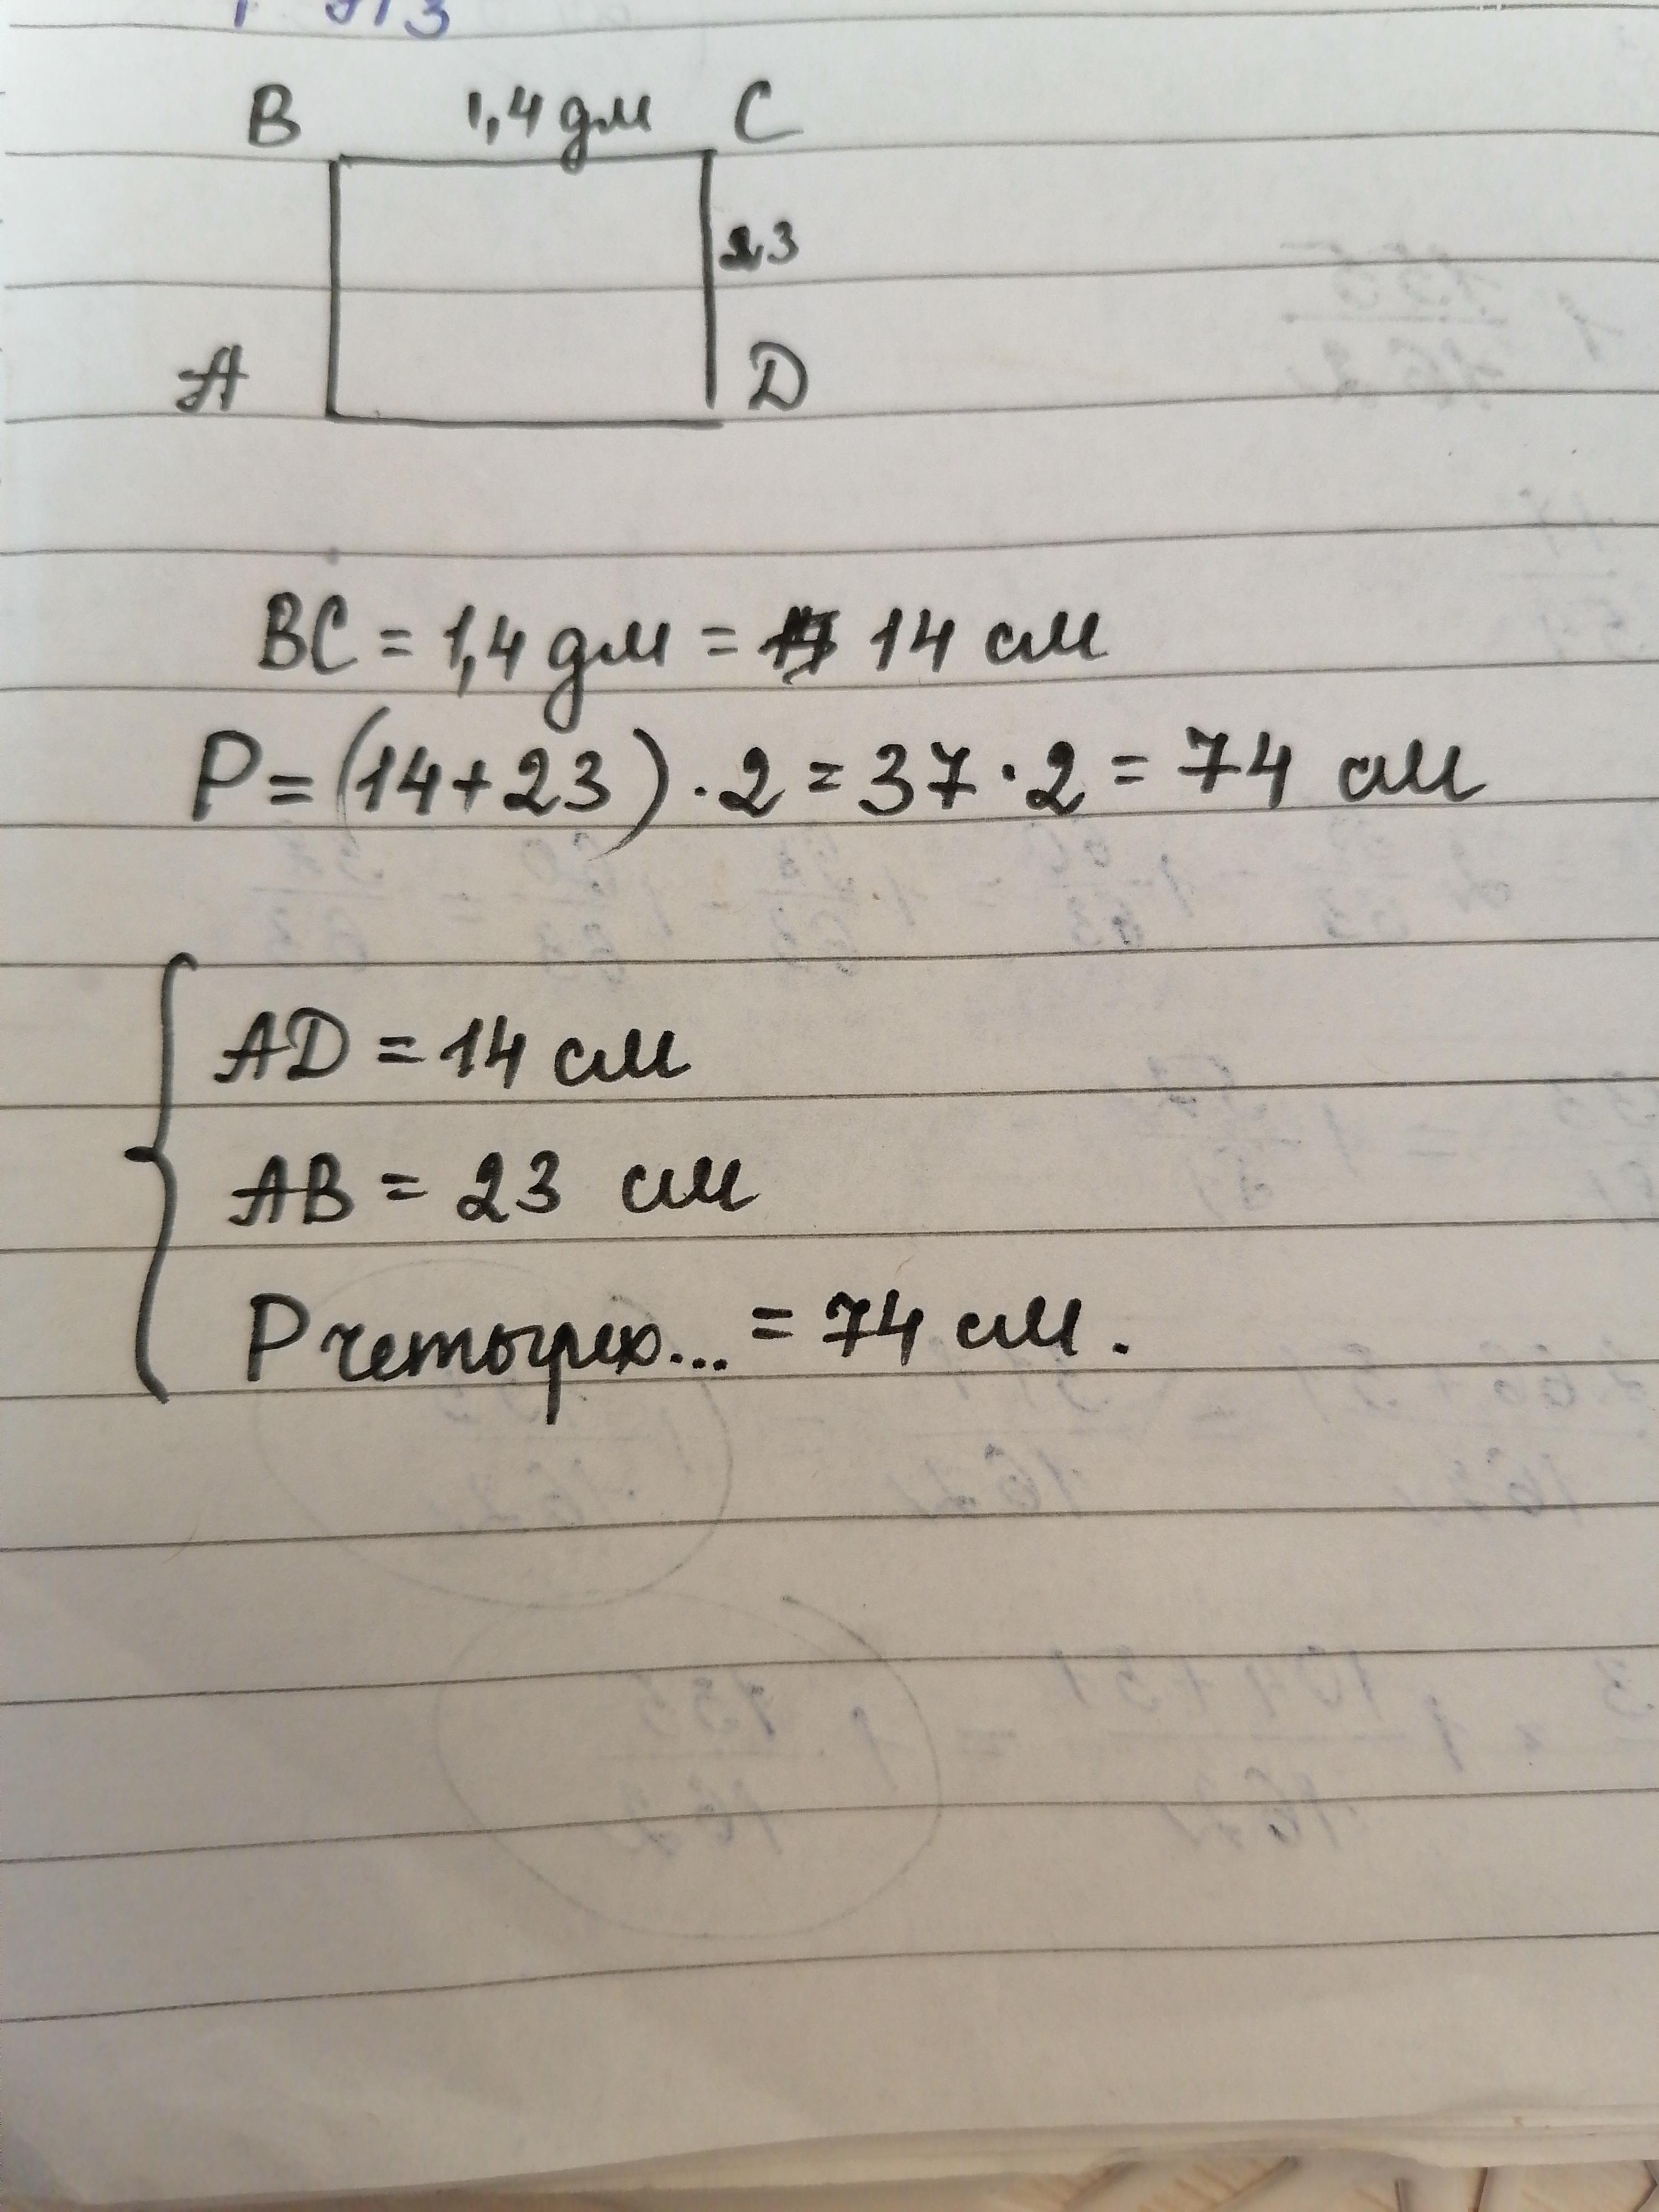 B 1,4 дм C
23
A D
BC = 1,4 дм = 14 см
P = (14+23) · 2 = 37 · 2 = 74 см
AD = 14 см
AB = 23 см
P четырех... = 74 см.